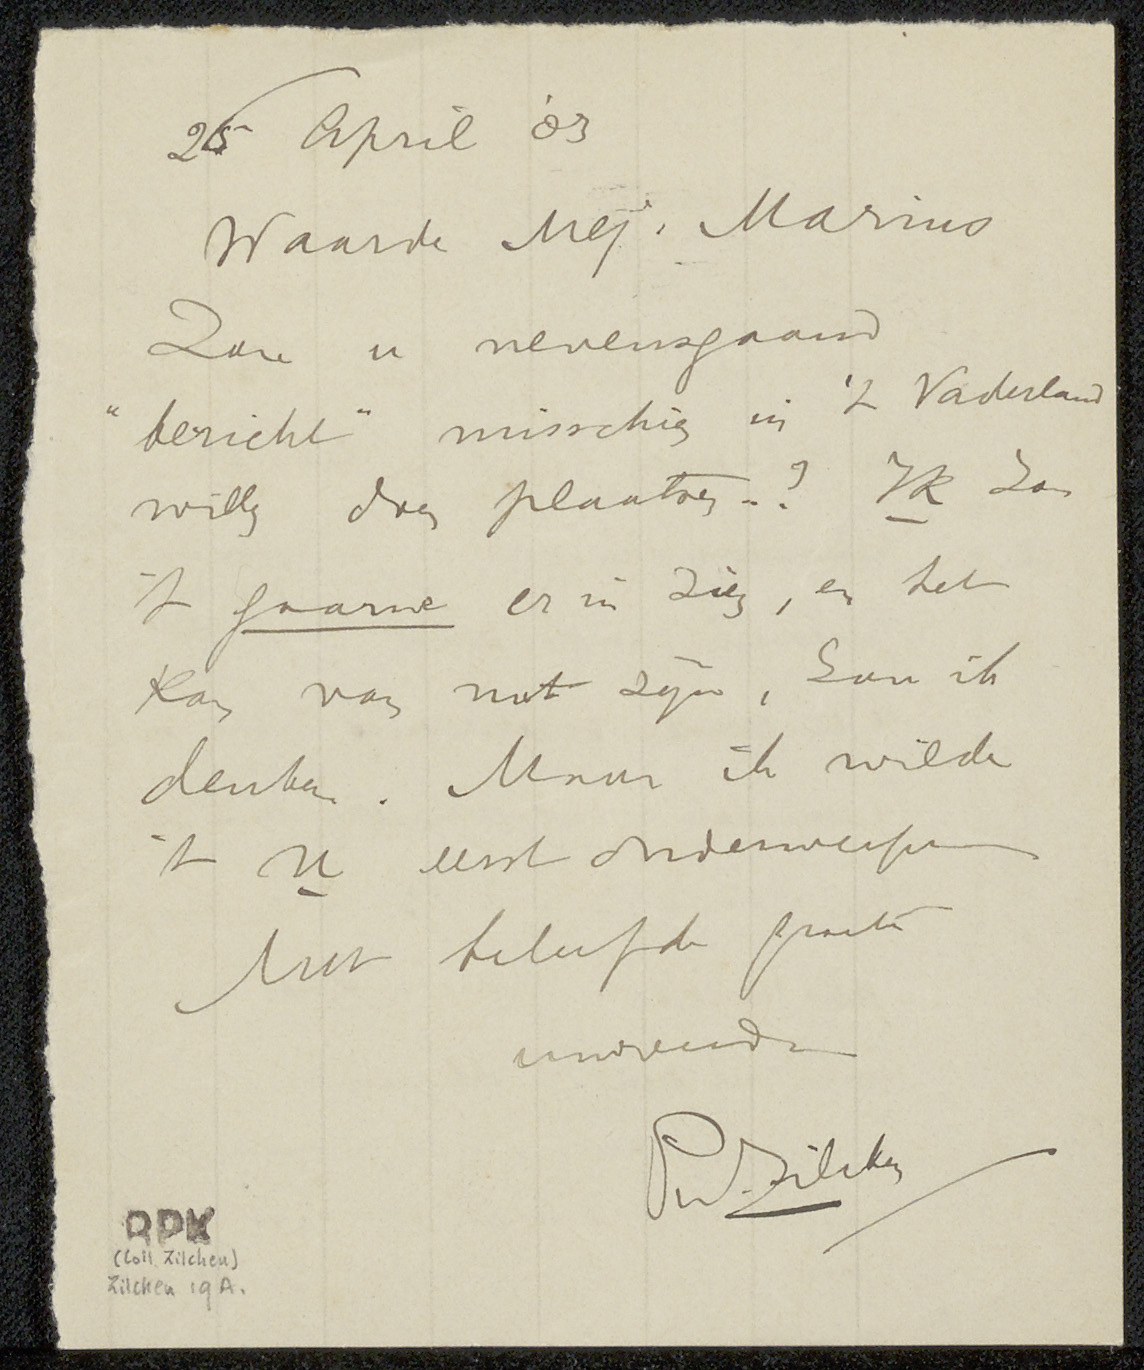 25 April '03
Waarde Mej. Marius
Zou u nevensgaand
"bericht" misschien in 't Vaderland
willen doen plaatsen..? Ik zou
't gaarne er in zien, en het
kan van nut zijn, zou ik
denken. Maar ik wilde
't u eerst onderwerpen
Met beleefde groete
uwdienende
Ph. Zilcken
RPK
(Coll. Zilcken)
Zilcken 19 A.